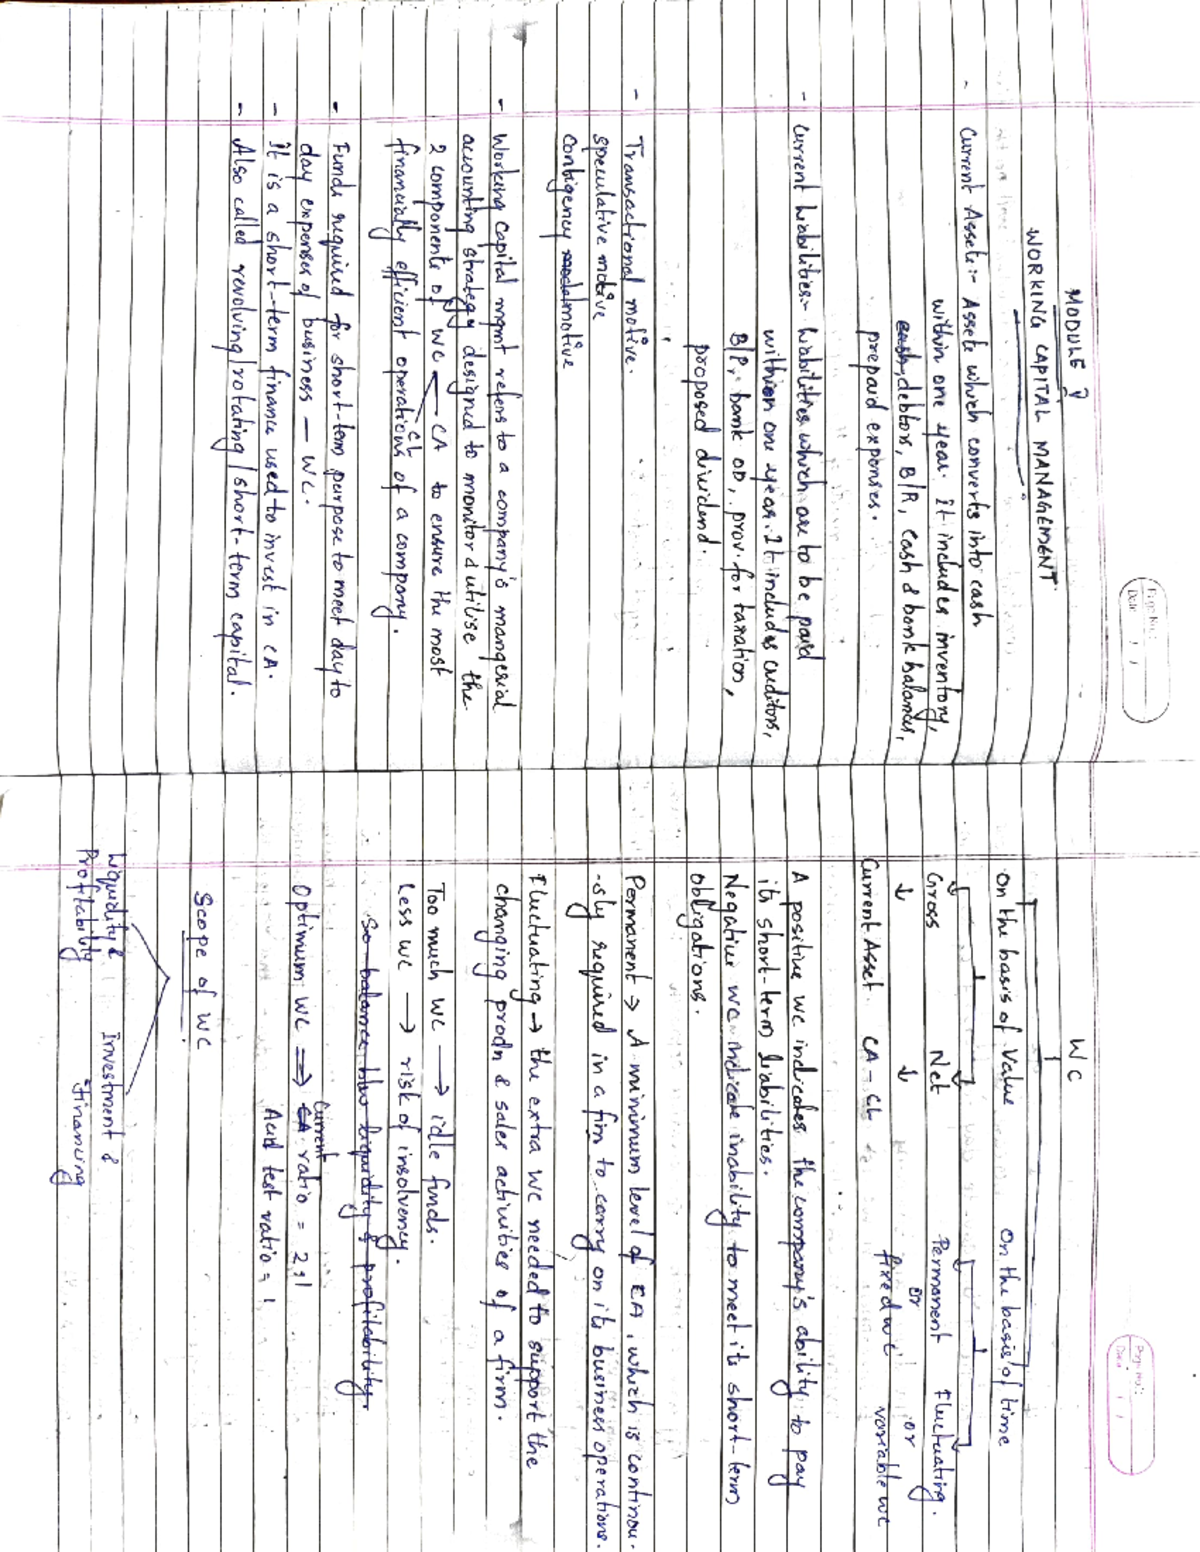 Page No.:
Date: / /
MODULE 9
WORKING CAPITAL MANAGEMENT
- Current Assets:- Assets which converts into cash
within one year. It includes inventory,
cash, debtors, B/R, cash & bank balances,
prepaid expenses.
- Current Liabilities:- Liabilities which are to be paid
withion one year. It includes creditors,
B/P, bank OD, prov. for taxation,
proposed dividend.
- Transactional motive.
speculative motive
contigency model motive
- Working capital mgmt refers to a company's mangerial
accounting strategy designed to monitor & utilise the
2 components of WC CA to ensure the most
CL
financially efficient operations of a company.
- Funds required for short-term purpose to meet day to
day expenses of business — WC.
- It is a short-term finance used to invest in CA.
- Also called revolving/rotating/short-term capital.
Page No.:
Date: / /
WC
On the basis of Value On the basis of time
Gross Net Permanent Fluctuating.
or or
Current Asset CA - CL fixed WC variable WC
A positive WC indicates the company's ability to pay
its short-term liabilities.
Negative WC indicate inability to meet its short-term
obligations.
Permanent → A minimum level of CA, which is continou-
-sly required in a fim to carry on its business operations.
Fluctuating → the extra WC needed to support the
changing prodn & sales activities of a firm.
Too much WC → idle funds.
Less WC → risk of insolvency.
So balance b/w liquidity & profitability.
Optimum WC ⇒ CA Current ratio = 2:1
Acid test ratio = 1
Scope of WC
Liquidity & Profitability
Investment & Financing